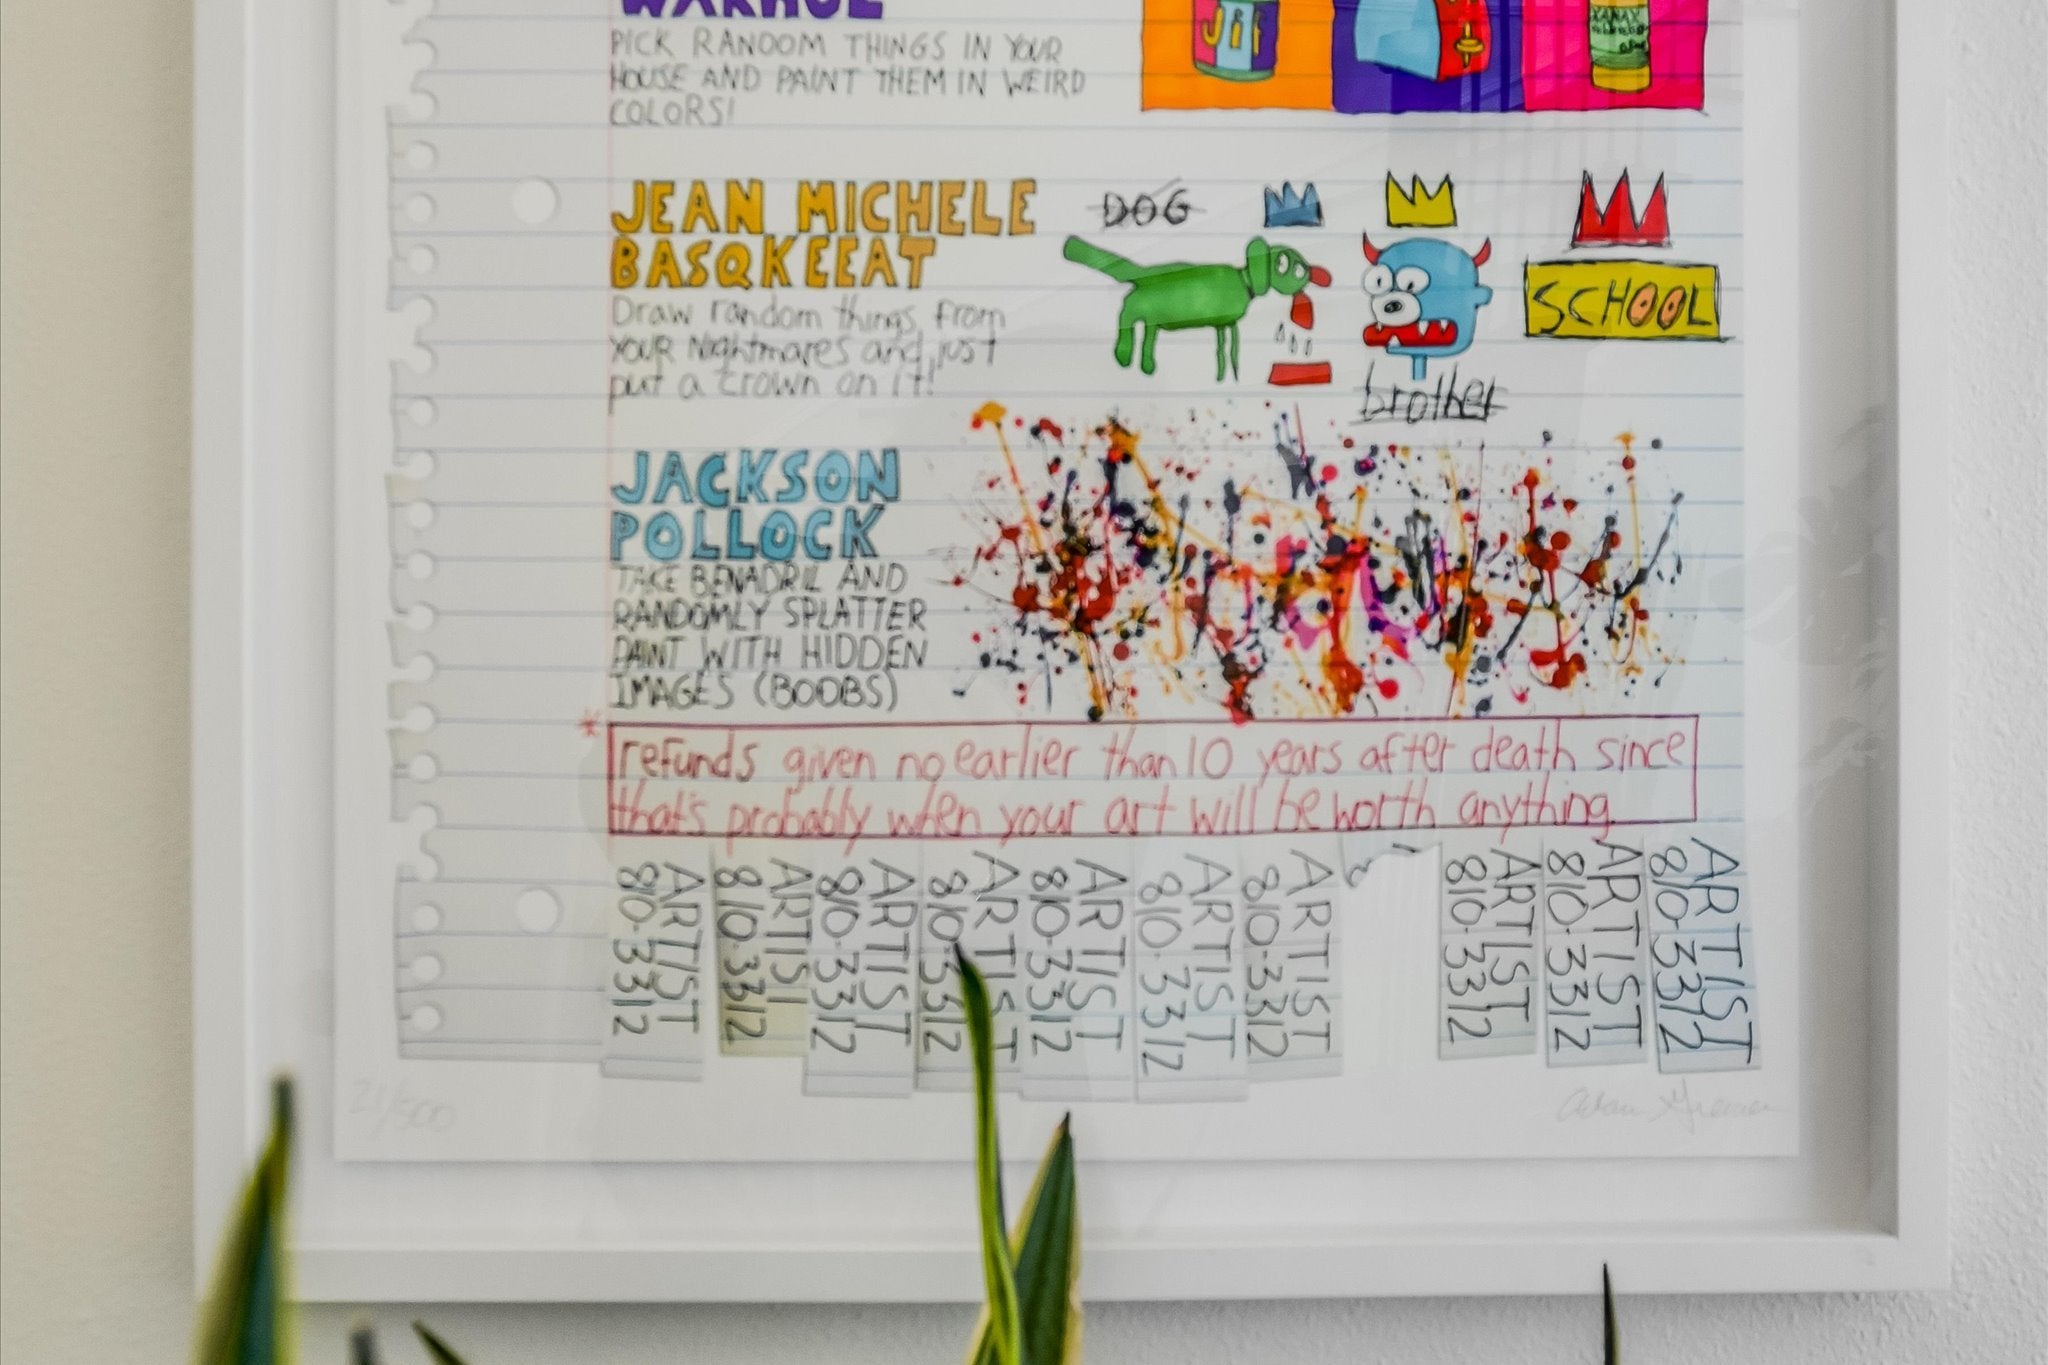 WARHOL
PICK RANDOM THINGS IN YOUR
HOUSE AND PAINT THEM IN WEIRD
COLORS!
Jif
XANAX
JEAN MICHELE
BASQKEEAT
Draw random things from
your Nightmares and just
put a crown on it!
DOG
SCHOOL
brother
JACKSON
POLLOCK
TAKE BENADRIL AND
RANDOMLY SPLATTER
PAINT WITH HIDDEN
IMAGES (BOOBS)
* refunds given no earlier than 10 years after death since
that's probably when your art will be worth anything.
ARTIST
810-3312
ARTIST
810-3312
ARTIST
810-3312
ARTIST
810-3312
ARTIST
810-3312
ARTIST
810-3312
ARTIST
810-3312
ARTIST
810-3312
ARTIST
810-3312
ARTIST
810-3312
/500